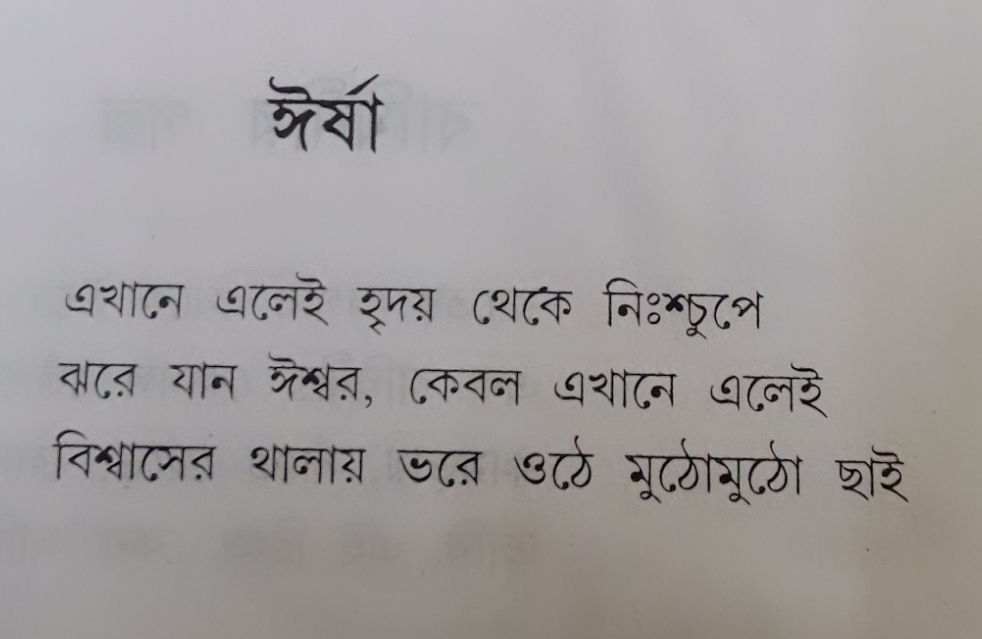 ঈর্ষা
এখানে এলেই হৃদয় থেকে নিঃশ্চুপে
ঝরে যান ঈশ্বর, কেবল এখানে এলেই
বিশ্বাসের থালায় ভরে ওঠে মুঠোমুঠো ছাই